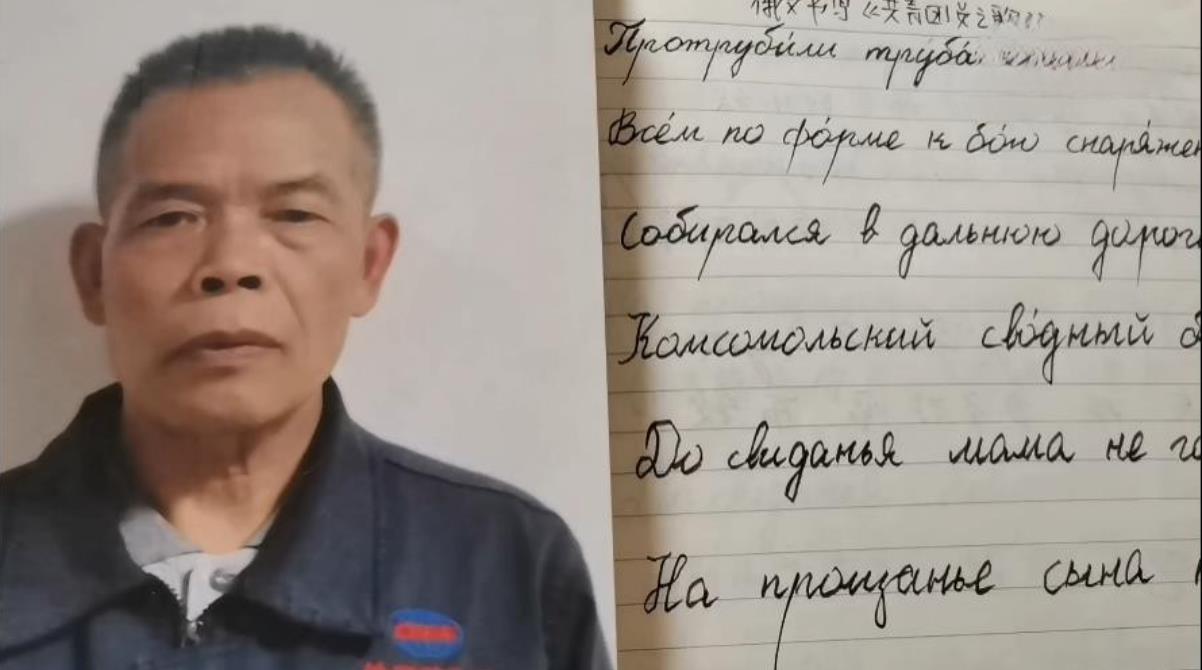 俄文书写《共青团员之歌》
Протруби́ли тру́ба́
Все́м по фо́рме к бо́ю снаря́жен
Собирался в дальнюю дорог
Комсомольский сво́дный
До свиданья мама не го
На прощанье сына